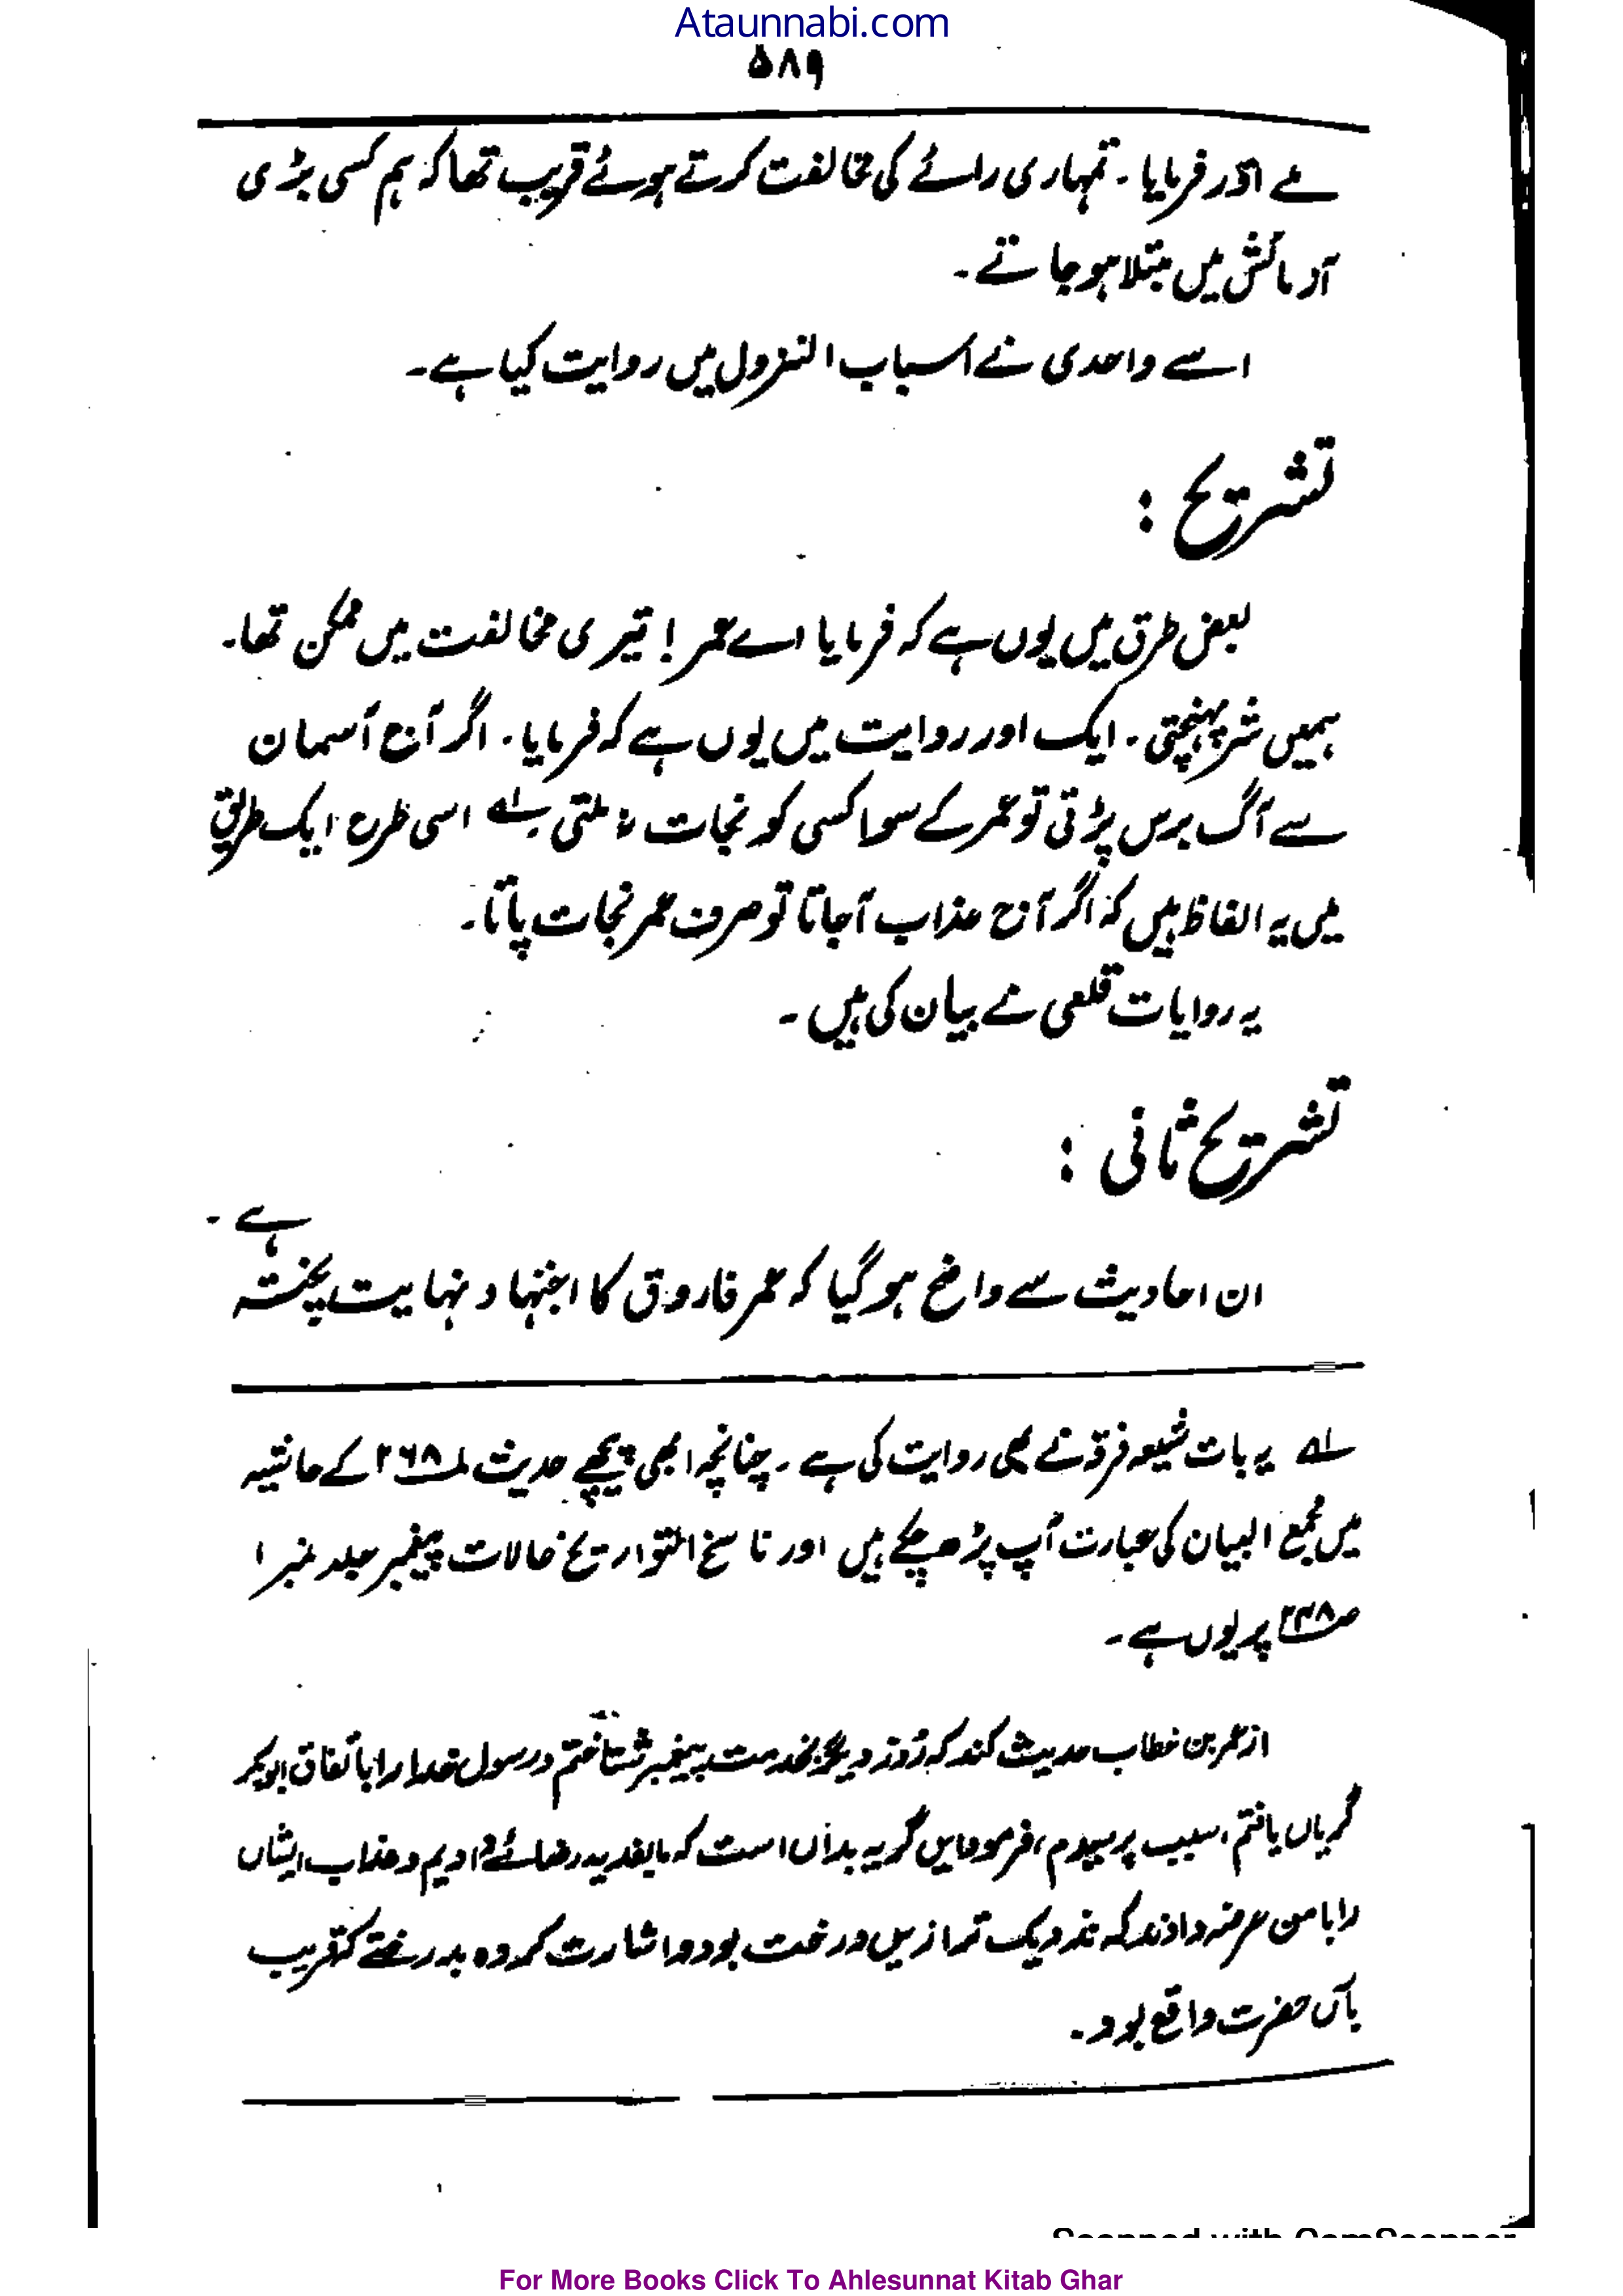 Ataunnabi.com
۵۸۹
ملے اور فرمایا ۔ تمہاری رائے کی مخالفت کرتے ہوئے قریب تھا کہ ہم کسی بڑی
آزمائش میں مبتلا ہو جاتے ۔
اسے واحدی نے اسباب النزول میں روایت کیا ہے ۔
تشریح :
بعض طرق میں یوں ہے کہ فرمایا اے عمر ! تیری مخالفت میں ممکن تھا ۔
ہمیں شر پہنچتی ۔ ایک اور روایت میں یوں ہے کہ فرمایا ۔ اگر آج آسمان
سے آگ برس پڑتی تو عمر کے سوا کسی کو نجات نہ ملتی ۔ لہ اسی طرح ایک طریق
میں یہ الفاظ ہیں کہ اگر آج عذاب آجاتا تو صرف عمر نجات پاتا ۔
یہ روایات قلعی نے بیان کی ہیں ۔
تشریح ثانی :
ان احادیث سے واضح ہو گیا کہ عمر فاروق کا اجتہاد نہایت پختہ
ہے ۔
لہ یہ بات شیعہ فرقہ نے بھی روایت کی ہے ۔ چنانچہ ابھی پیچھے حدیث ۲۶۸ کے حاشیہ
میں مجمع البیان کی عبارت آپ پڑھ چکے ہیں اور ناسخ التواریخ حالات پیغمبر جلد نمبر ۱
ص۲۳۸ پر یوں ہے ۔
از عمر بن خطاب حدیث کنند کہ روز دیگر بخدمت پیغمبر شتافتم و رسول خدا را باتفاق ابوبکر
گریاں یافتم، سبب پرسیدم، فرمود ایں گریہ بداں است کہ ما بفدیہ رضائے دادیم و عذاب ایشاں
را بامن عرضہ دادند کہ نزدیک تر از یں درخت بود و اشارت کرد بہ درختے کہ قریب
بآں حضرت واقع بود ۔
For More Books Click To Ahlesunnat Kitab Ghar